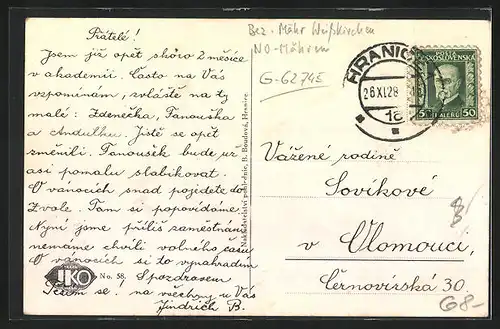 Přátelé!
Jsem již opět skoro 2 měsíce
v akademii. Často na Vás
vzpomínám, zvláště na ty
malé: Zdenečka, Tanouška
a Andulku. Jistě se opět
změnili. Tanoušik bude už
asi pomalu slabikovat.
O vánocích snad pojedete do
Zvole. Tam si popovídáme.
Nyní jsme příliš zaměstnáni
nemáme chvíli volného času
O vánocích si to vynahradím
S pozdravem
Těším se! na všechny u Vás
Jindřich B.
JKO
No. 58.
Nakladatelství pohlednic, B. Boudová, Hranice
Bez. Mähr Weißkirchen
NO-Mähren
G-6274E
HRANICE
26 XI 28
18
POŠTA
ČESKOSLOVENSKÁ
50 HALÉŘŮ 50
Vážené rodině
Sovíkové
v Olomouci,
Černovírská 30.
G8-